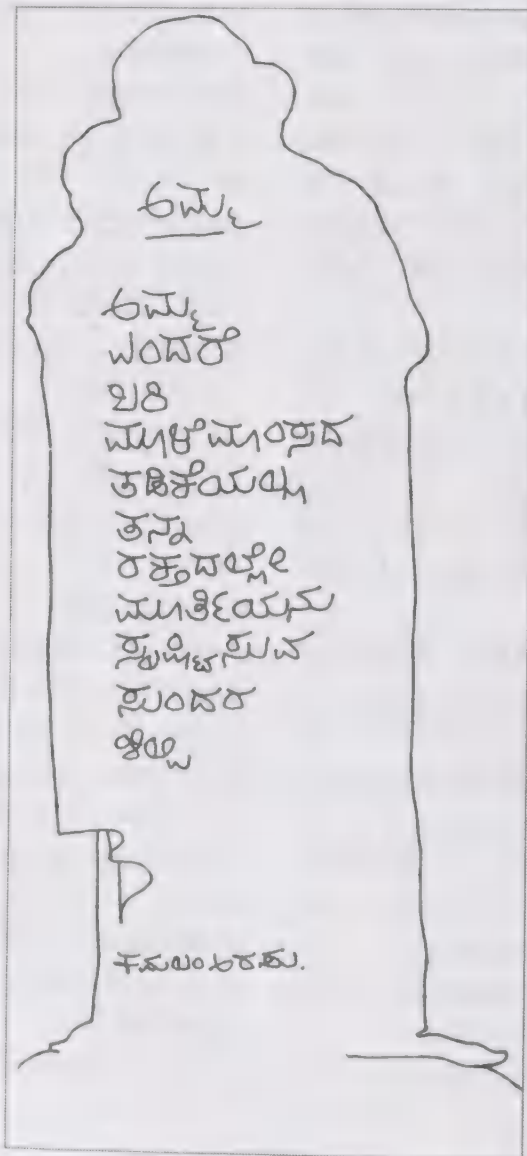 ಅಮ್ಮ
ಅಮ್ಮ
ಎಂದರೆ
ಬರಿ
ಮೂಳೆಮಾಂಸದ
ತಡಿಕೆಯಲ್ಲ
ತನ್ನ
ರಕ್ತದಲ್ಲೇ
ಮೂರ್ತಿಯನು
ಸೃಷ್ಟಿಸುವ
ಸುಂದರ
ಶಿಲ್ಪಿ